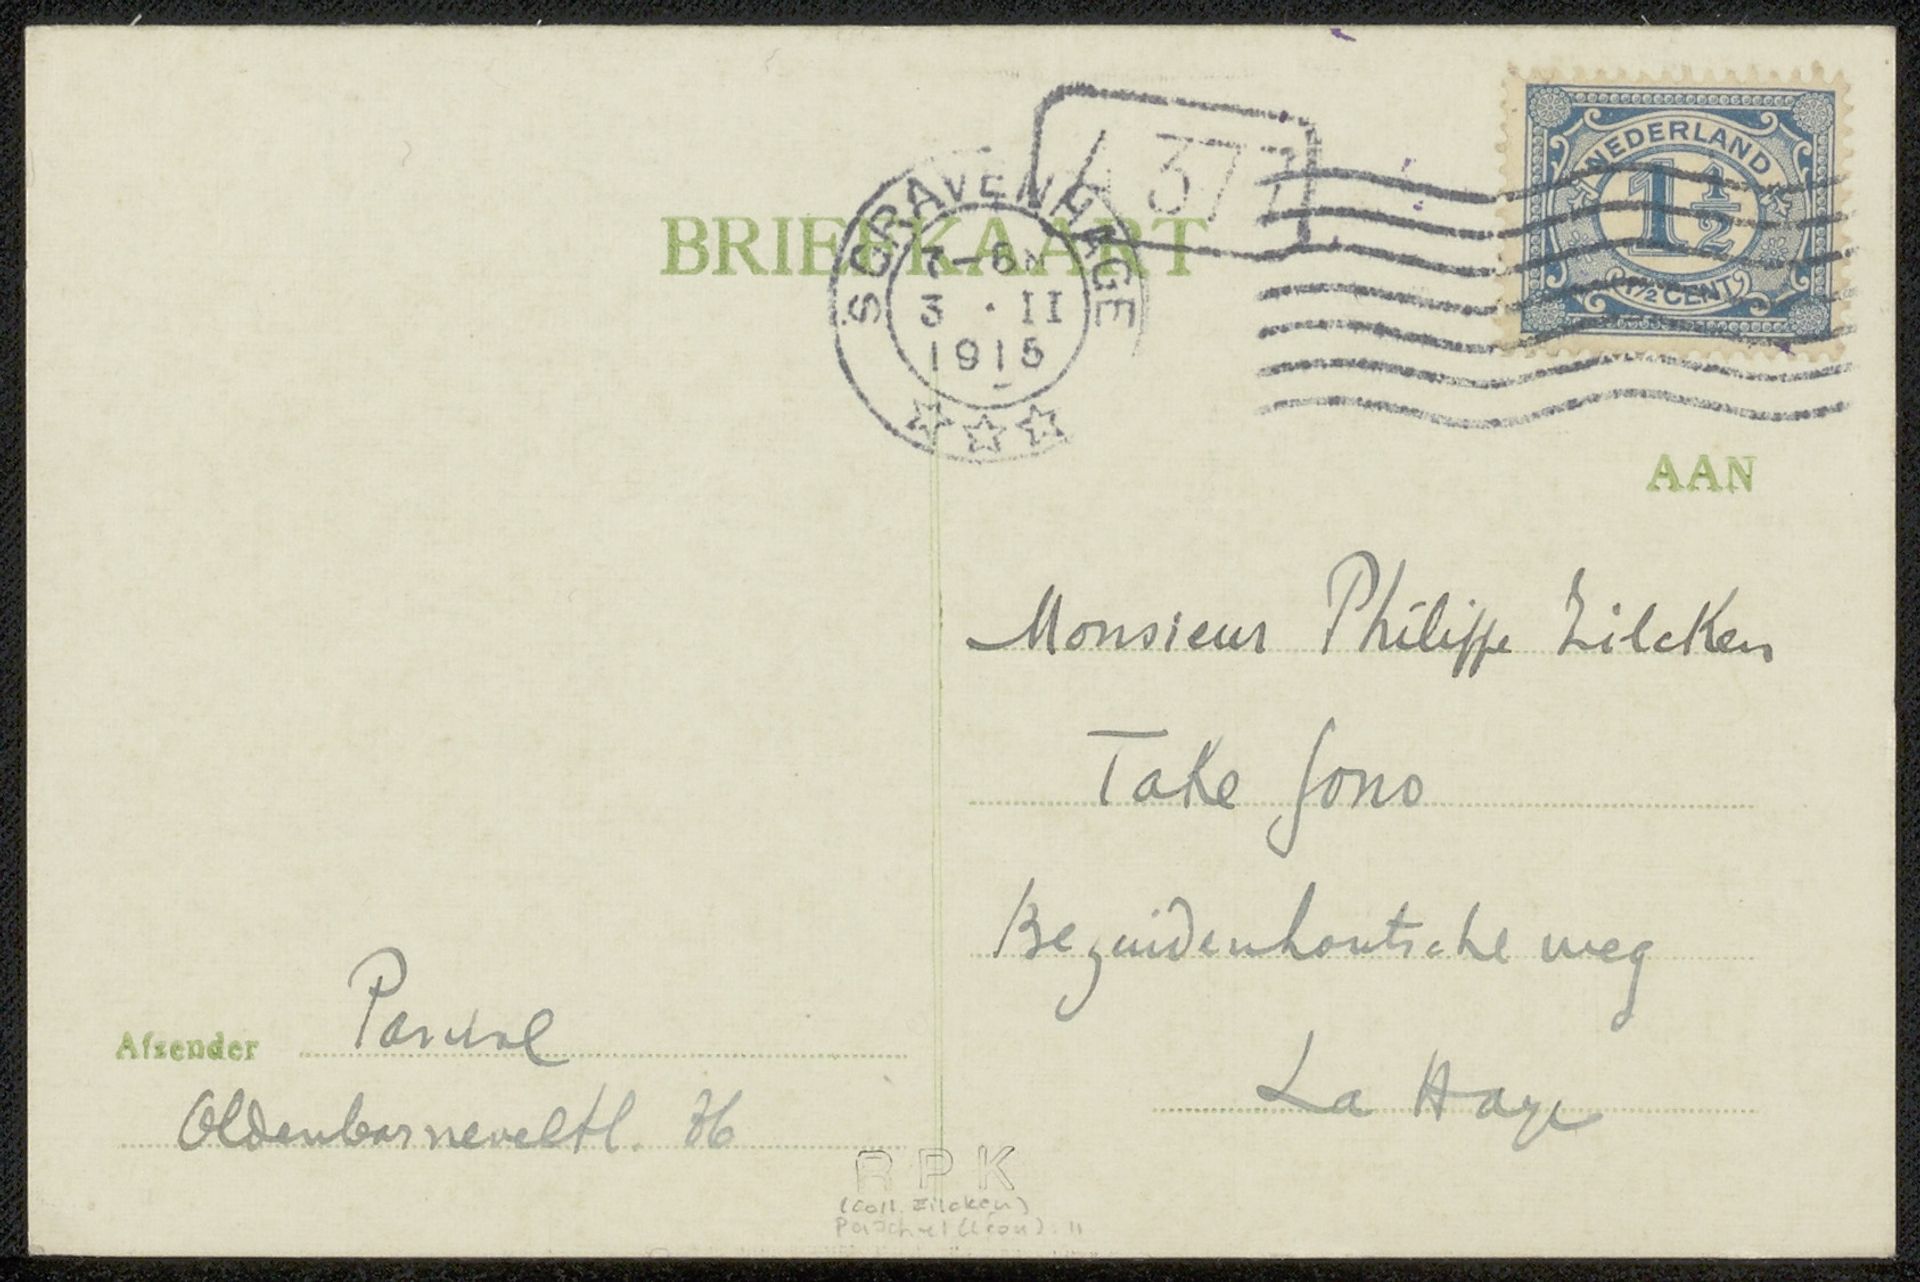 BRIEFKAART
'S GRAVENHAGE
7-8 N
3 · II
1915
377
NEDERLAND
1 1/2
1 1/2 CENT
AAN
Monsieur Philippe Zilcken
Take Jono
Bezuidenhoutsche weg
La Haye
Afsender
Oldenbarneveltl. 36
RPK
(coll. Zilcken)